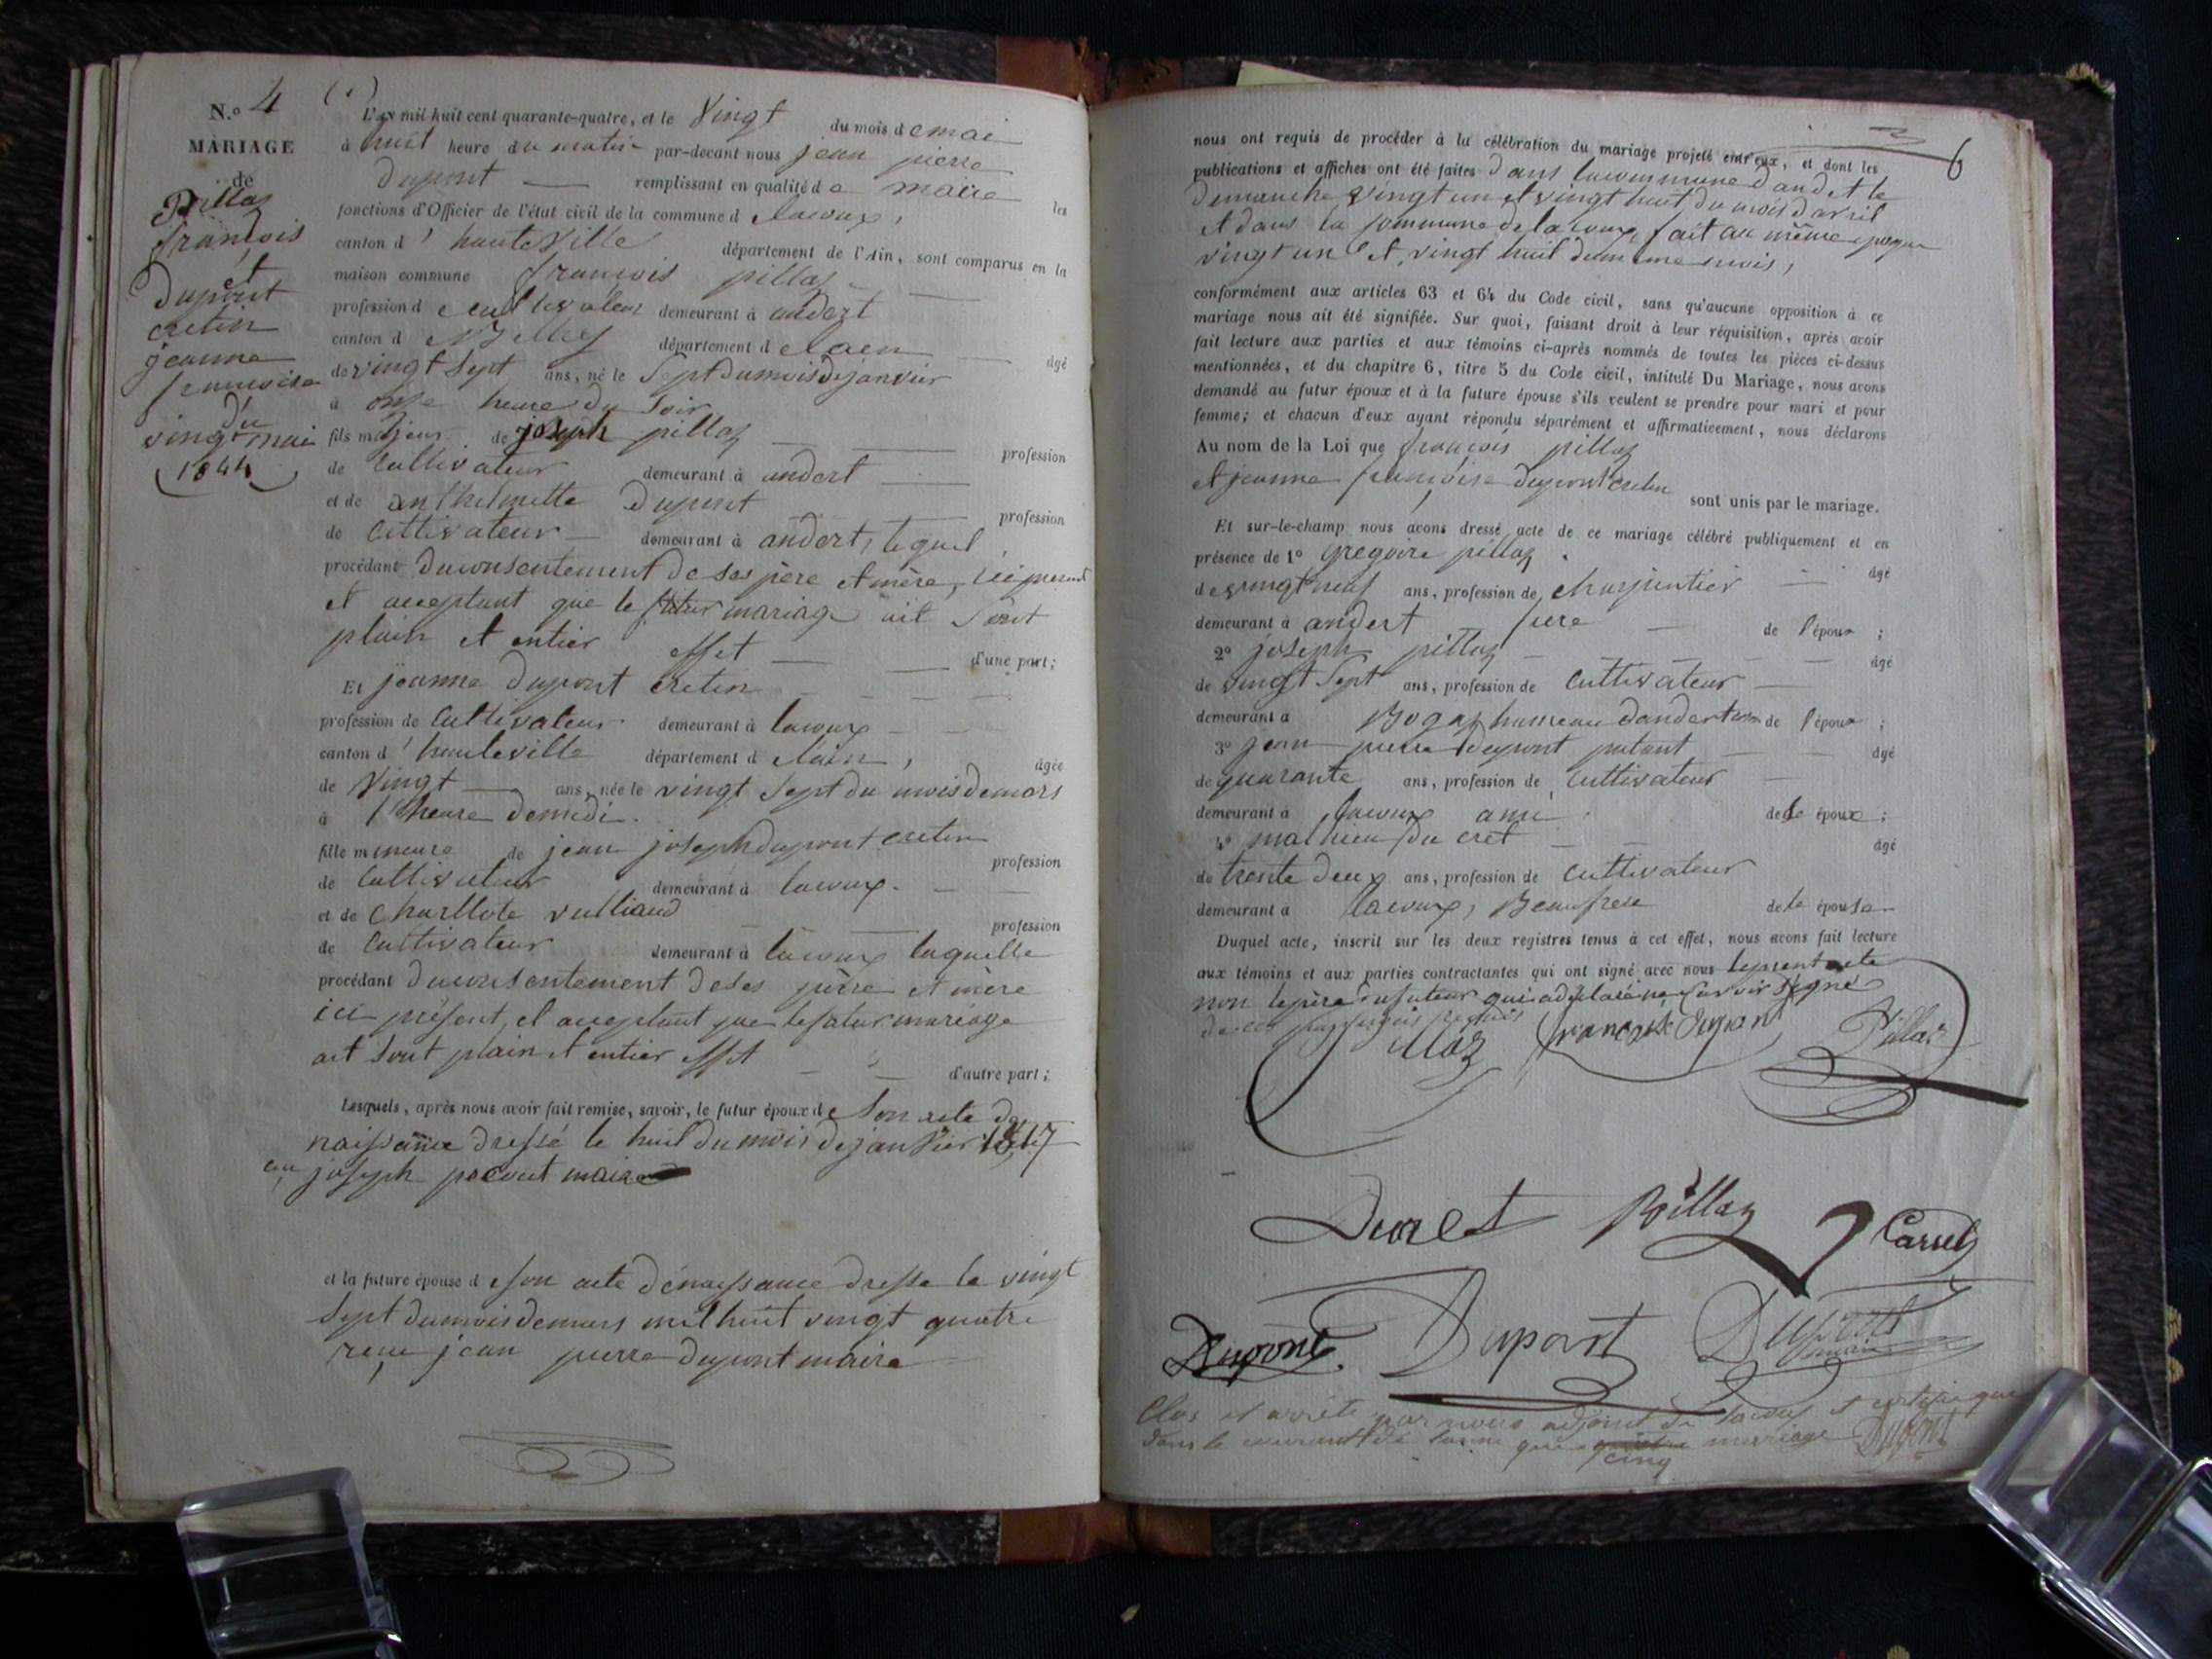 N.º 4
MARIAGE
de
Pillaz
françois
et
Dupont
cretin
jeanne
francoise
du
vingt mai
(1844)
L'an mil huit cent quarante-quatre, et le Vingt du mois de mai
à huit heure du matin par-devant nous jean pierre
Dupont remplissant en qualité de maire les
fonctions d'Officier de l'état civil de la commune d lacoux,
canton d'hauteville département de l'Ain, sont comparus en la
maison commune françois pillaz
profession de cultivateur demeurant à andert
canton d Belley département d elaen âgé
de vingt sept ans, né le Sept du mois de janvier
à onze heure du Soir
fils majeur de joseph pillaz profession
de Cultivateur demeurant à andert
et de anthelmette Dupont profession
de Cultivateur demeurant à andert, lequel
procédant du consentement de ses père et mère, ici present
et acceptant que le futur mariage ait Sont
plain et entier effet d'une part;
Et jeanne Dupont cretin
profession de Cultivateur demeurant à lacoux
canton d'hauteville département d elain, âgée
de Vingt ans, née le vingt Sept du mois de mars
à 1 heure de midi
fille mineure de jean joseph dupont cretin profession
de Cultivateur demeurant à lacoux.
et de Charllote vulliaud profession
de Cultivateur demeurant à lacoux laquelle
procédant du consentement de ses père et mère
ici présent, et acceptant que le futur mariage
ait Sont plain et entier effet d'autre part;
Lesquels, après nous avoir fait remise, savoir, le futur époux de Son acte de
naissance dressé le huit du mois de janvier 1817
joseph maire
et la future épouse d eson acte de naissance dresse le vingt
Sept du mois de mars mil huit vingt quatre
jean pierre dupont maire
6
nous ont requis de procéder à la célébration du mariage projeté entr'eux, et dont les
publications et affiches ont été faites dans la commune dandert le
Dimanche vingt un et vingt huit du mois d'avril
et dans la commune de lacoux, fait au même epoque
vingt un et vingt huit du meme mois,
conformément aux articles 63 et 64 du Code civil, sans qu'aucune opposition à ce
mariage nous ait été signifiée. Sur quoi, faisant droit à leur réquisition, après avoir
fait lecture aux parties et aux témoins ci-après nommés de toutes les pièces ci-dessus
mentionnées, et du chapitre 6, titre 5 du Code civil, intitulé Du Mariage, nous avons
demandé au futur époux et à la future épouse s'ils veulent se prendre pour mari et pour
femme; et chacun d'eux ayant répondu séparément et affirmativement, nous déclarons
Au nom de la Loi que françois pillaz
et jeanne françoise dupont cretin sont unis par le mariage.
Et sur-le-champ nous avons dressé acte de ce mariage célébré publiquement et en
présence de 1º Gregoire pillaz âgé
de vingt neuf ans, profession de charpentier
demeurant à andert frere de l'époux;
2º joseph pillaz âgé
de vingt Sept ans, profession de Cultivateur
demeurant à hameau dandert de l'époux;
3º jean pierre dupont putant âgé
de quarante ans, profession de Cultivateur
demeurant à lacoux ami de le époux;
4º mathieu du cret âgé
de trente deux ans, profession de Cultivateur
demeurant à lacoux, Beaufrere de le épouse
Duquel acte, inscrit sur les deux registres tenus à cet effet, nous avons fait lecture
aux témoins et aux parties contractantes qui ont signé avec nous le present acte
non le père du futeur qui a déclaré ne Savoir Signé
de ce requis
illaz françoise Dupont Pillaz
Ducret Pillaz Carrel
Dupont Dupont Dupont maire
Clos et arrêté par nous adjoint de lacoux et certifie que
dans le courant de lanne que mariage Dupont
cinq